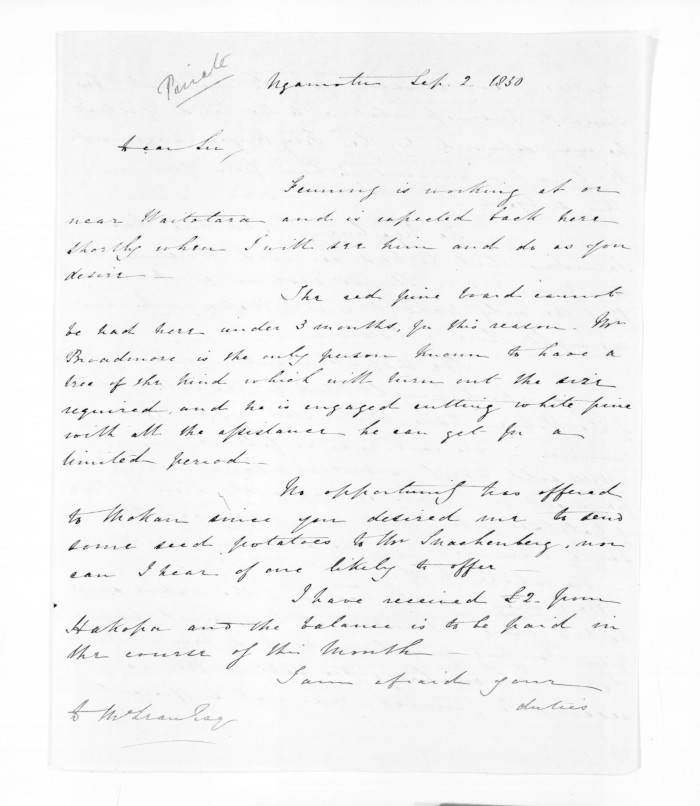 Private
Ngamotu Sep. 2. 1850
Dear Sir,
Fenning is working at or
near Waitotara and is expected back here
shortly when I will see him and do as you
desire -
The red pine board cannot
be had here under 3 months, for this reason. Mr
Broadmore is the only person known to have a
tree of the kind which will turn out the size
required, and he is engaged cutting white pine
with all the assistance he can get for a
limited period -
No opportunity has offered
to Mokau since you desired me to send
some seed potatoes to Mr Snachenberg, nor
can I hear of one likely to offer -
I have received £2 from
Hakopa and the balance is to be paid in
the course of this Month -
I am afraid your
duties
D McLean Esq